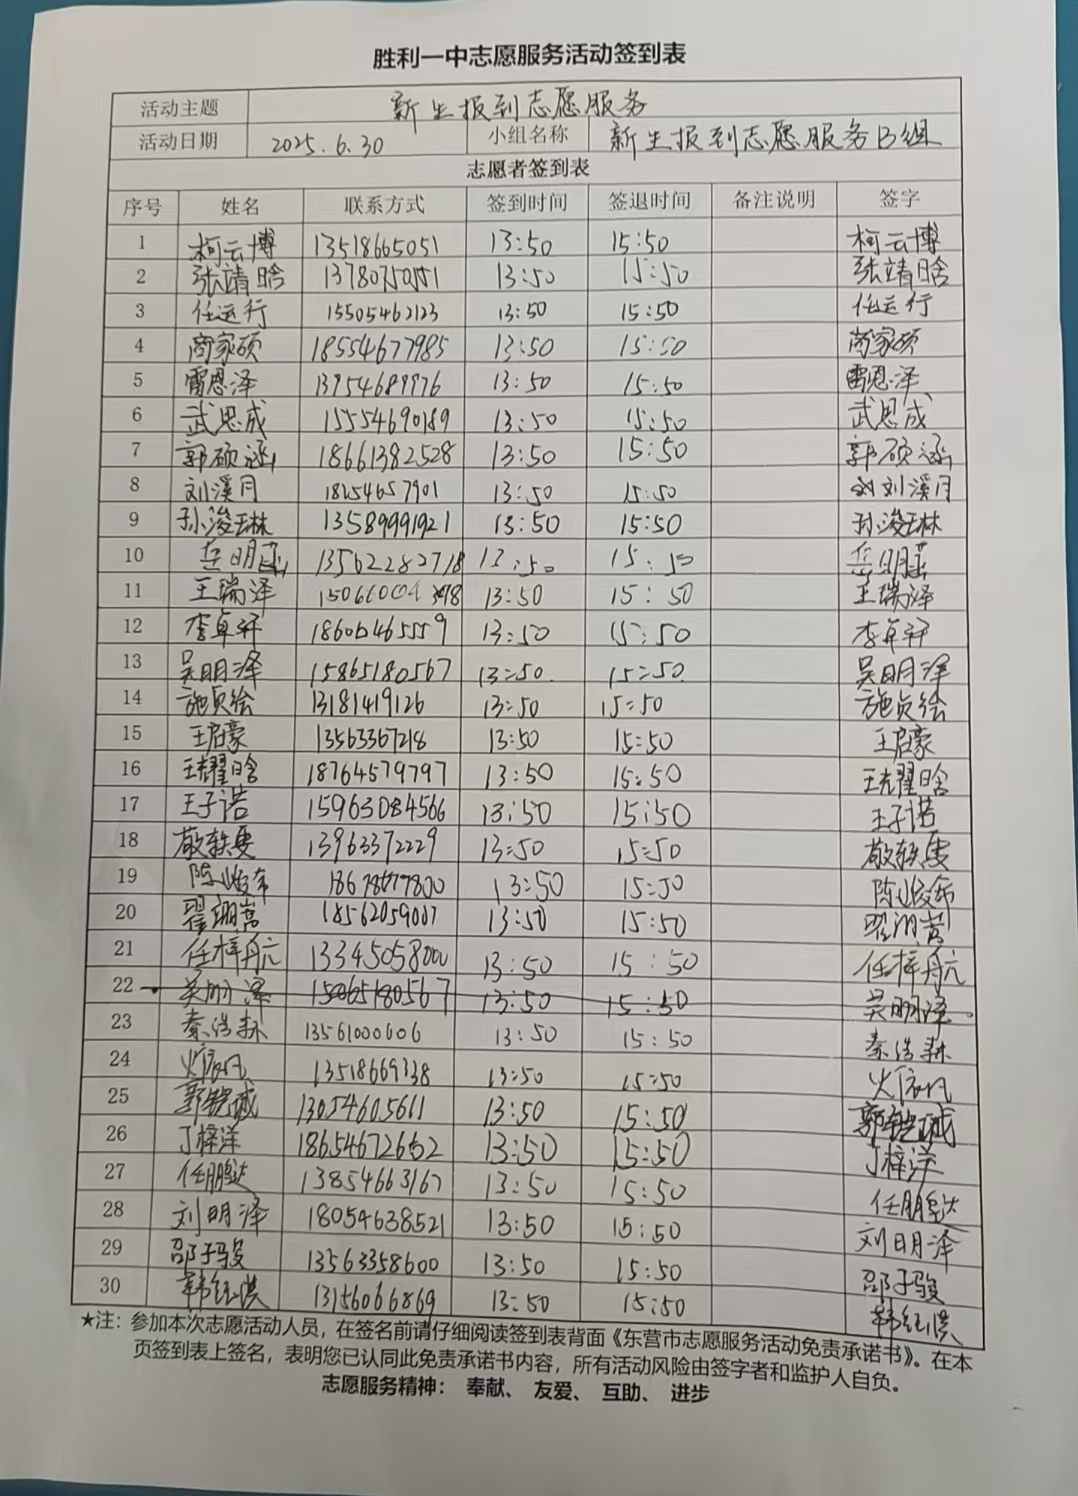 胜利一中志愿服务活动签到表
活动主题 新生报到志愿服务
活动日期 2025.6.30 小组名称 新生报到志愿服务B组
志愿者签到表
序号 姓名 联系方式 签到时间 签退时间 备注说明 签字
1 柯云博 13518665051 13:50 15:50 柯云博
2 张靖晗 13:50 15:50 张靖晗
3 任运行 15505462123 13:50 15:50 任运行
4 商家硕 18554677985 13:50 15:50 商家硕
5 雷恩泽 13954689976 13:50 15:50 雷恩泽
6 武思成 15554690189 13:50 15:50 武思成
7 郭硕涵 18661382528 13:50 15:50 郭硕涵
8 刘溪月 18254657901 13:50 15:50 刘溪月
9 孙浚琳 13589991921 13:50 15:50 孙浚琳
10 岳明菡 13562282718 13:50 15:50 岳明菡
11 王瑞泽 13:50 15:50 王瑞泽
12 李卓轩 18606465559 13:50 15:50 李卓轩
13 吴明泽 15865180567 13:50 15:50 吴明泽
14 施贞绘 13181419126 13:50 15:50 施贞绘
15 王启豪 13563367218 13:50 15:50 王启豪
16 王耀晗 18764579797 13:50 15:50 王耀晗
17 王子诺 15963084566 13:50 15:50 王子诺
18 敬轶雯 13963372229 13:50 15:50 敬轶雯
19 陈峻布 18678677800 13:50 15:50 陈峻布
20 翟翊嵩 18562059007 13:50 15:50 翟翊嵩
21 任梓航 13345058000 13:50 15:50 任梓航
22 吴明泽 15865180567 13:50 15:50 吴明泽
23 秦浩霖 13561000606 13:50 15:50 秦浩霖
24 13518669338 13:50 15:50
25 郭铠诚 13054605611 13:50 15:50 郭铠诚
26 丁梓洋 18654672652 13:50 15:50 丁梓洋
27 任鹏达 13854663167 13:50 15:50 任鹏达
28 刘明泽 18054638521 13:50 15:50 刘明泽
29 邵子骏 13563358600 13:50 15:50 邵子骏
30 韩纪淇 13156066869 13:50 15:50 韩纪淇
★注：参加本次志愿活动人员，在签名前请仔细阅读签到表背面《东营市志愿服务活动免责承诺书》。在本
页签到表上签名，表明您已认同此免责承诺书内容，所有活动风险由签字者和监护人自负。
志愿服务精神： 奉献、 友爱、 互助、 进步